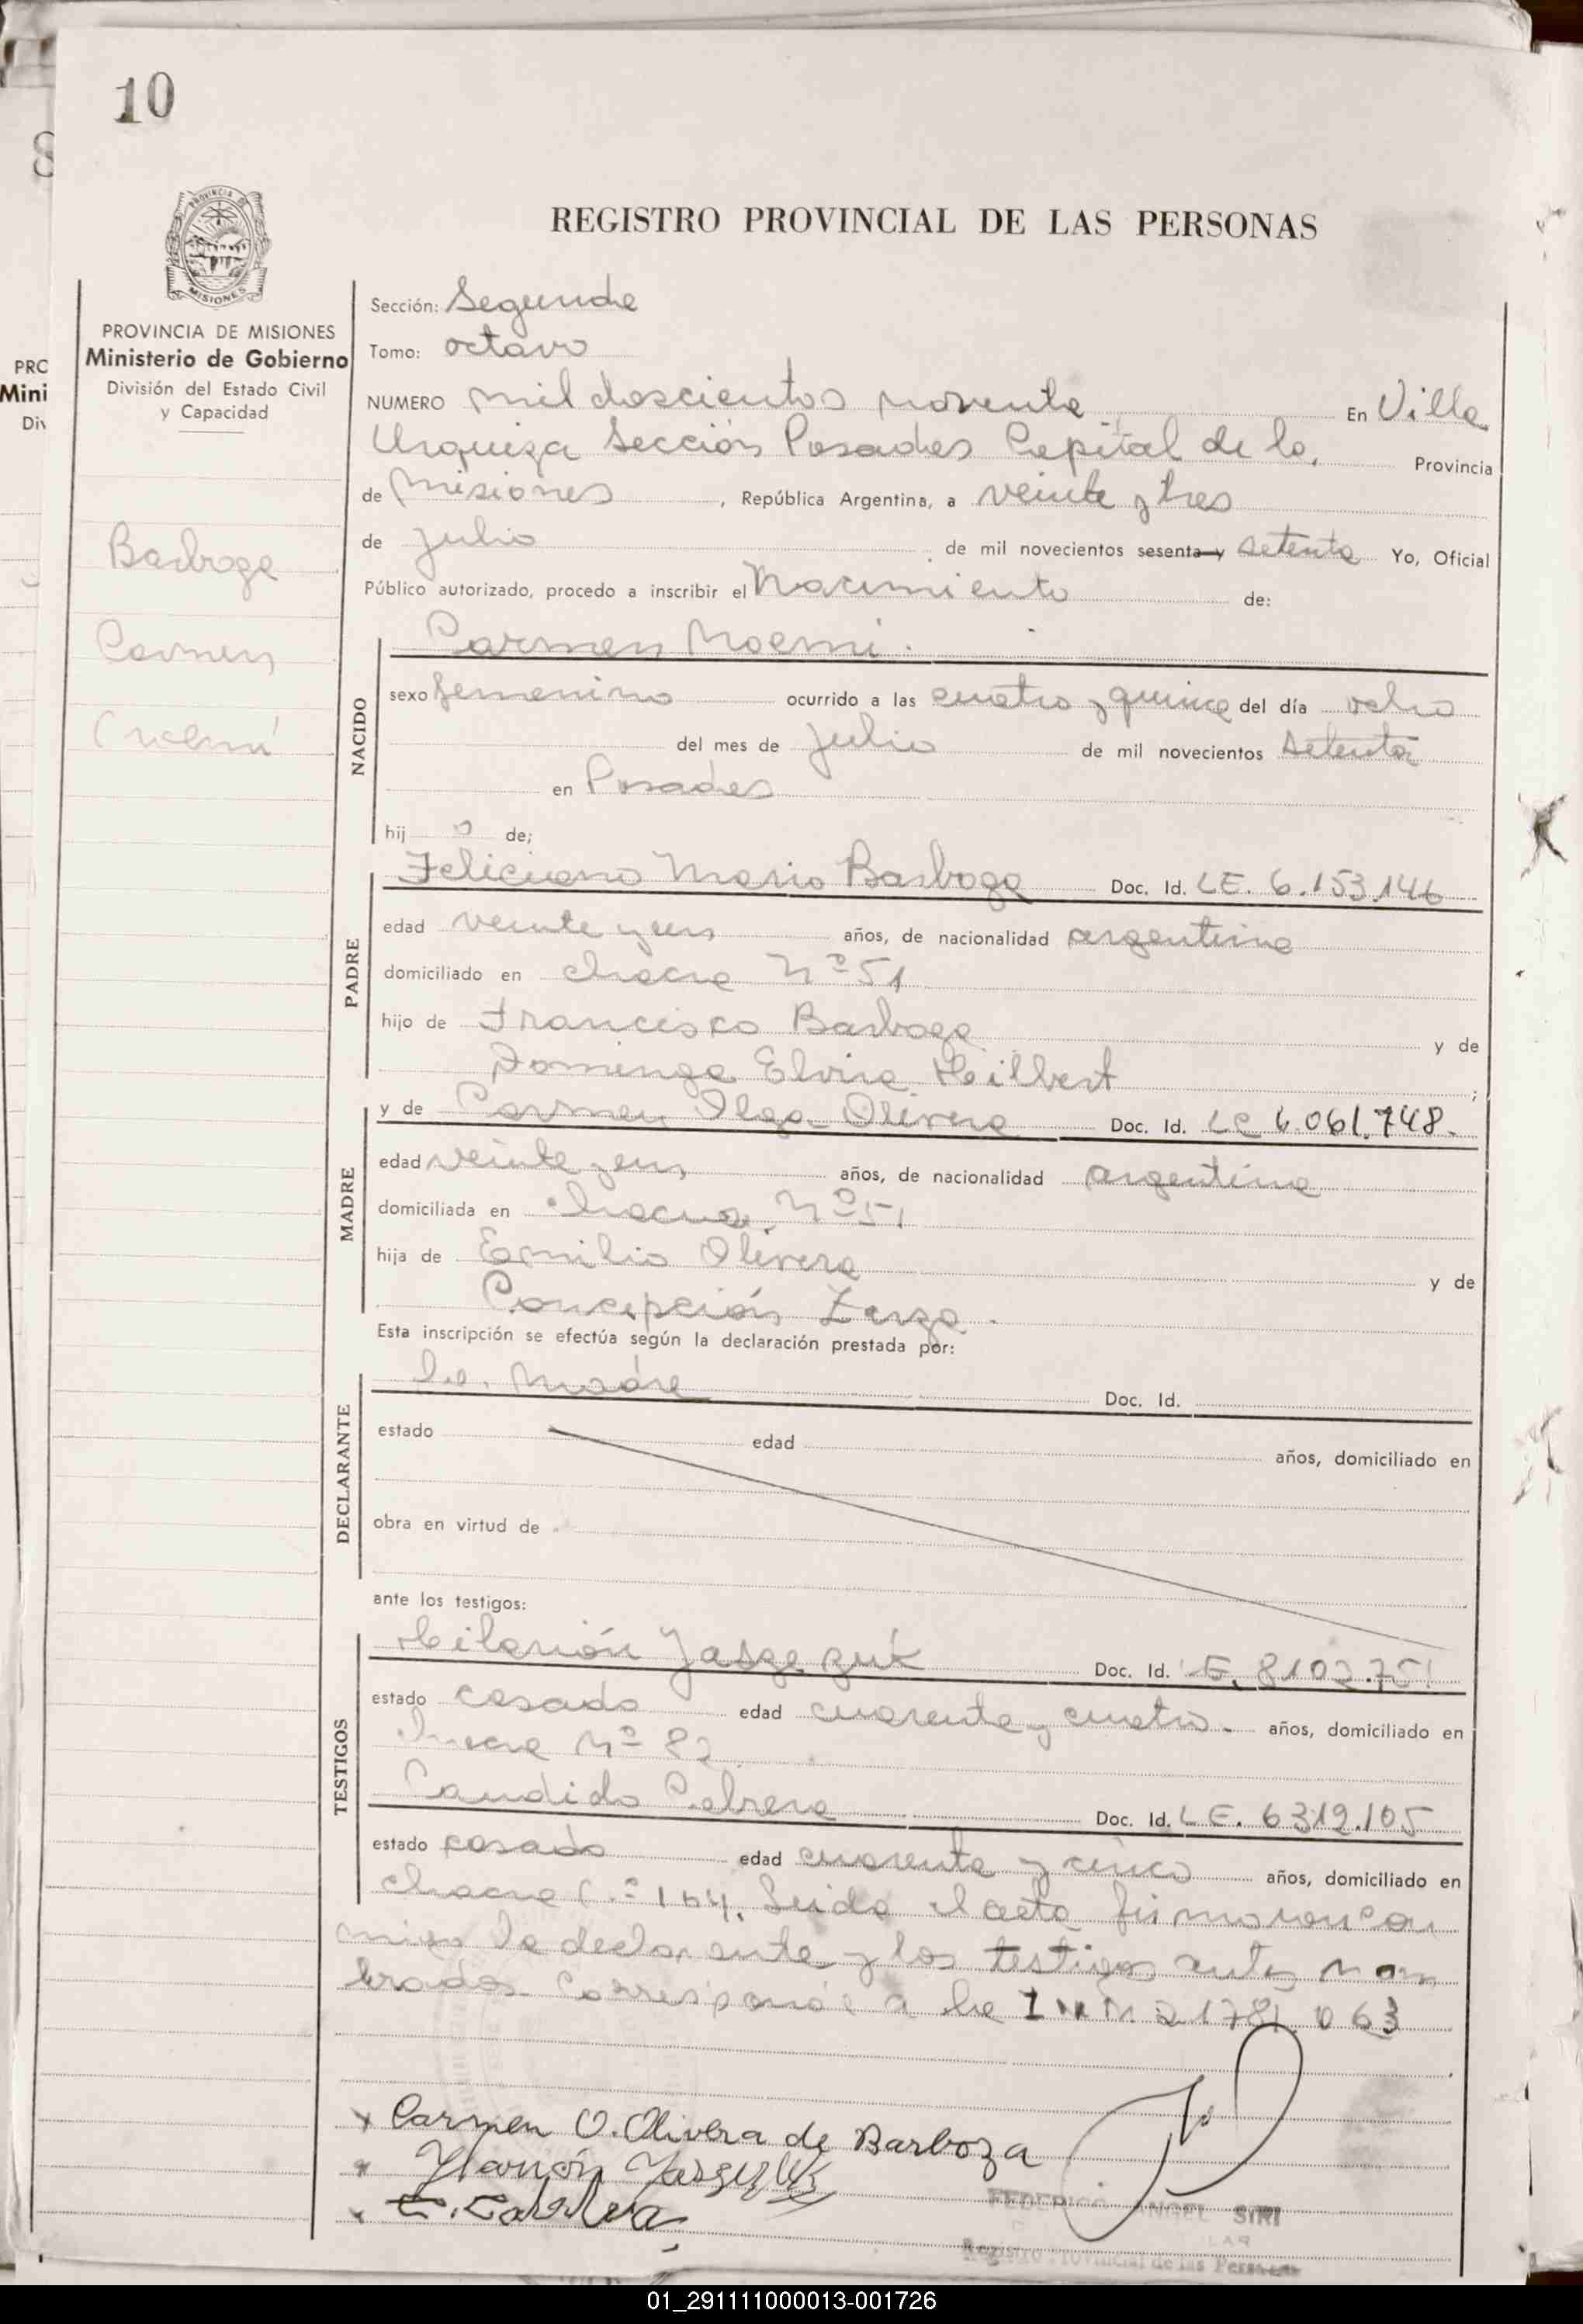 10
REGISTRO PROVINCIAL DE LAS PERSONAS
PROVINCIA DE MISIONES
Ministerio de Gobierno
División del Estado Civil
y Capacidad
Barboza
Carmen
Noemí
Sección: Segunda
Tomo: octavo
NUMERO mil doscientos noventa En Villa
Urquiza Sección Posadas Capital de la Provincia
de Misiones, República Argentina, a veinte y tres
de Julio de mil novecientos sesenta y setenta Yo, Oficial
Público autorizado, procedo a inscribir el Nacimiento de:
NACIDO
Carmen Noemi.
sexo femenino ocurrido a las cuatro y quince del día ocho
del mes de Julio de mil novecientos setenta
en Posadas
hij a de;
PADRE
Feliciano Mario Barboza Doc. Id. LE. 6.153.146
edad veinte y años, de nacionalidad argentina
domiciliado en chacra Nº 51
hijo de Francisco Barboza y de
Dominga Elvira Hilbert;
MADRE
y de Carmen Olga Olivera Doc. Id. LC 6.061.748.
edad veinte y años, de nacionalidad argentina
domiciliada en chacra Nº 51
hija de Emilio Olivera y de
Concepción Zarza.
Esta inscripción se efectúa según la declaración prestada por:
DECLARANTE
la madre Doc. Id.
estado edad años, domiciliado en
obra en virtud de
ante los testigos:
TESTIGOS
Hilarión Jaszezuk Doc. Id. LE. 8102.751
estado casado edad cuarenta y cuatro. años, domiciliado en
chacra Nº 82
Candido Cabrera Doc. Id. LE. 6312.105
estado casado edad cuarenta y cinco años, domiciliado en
chacra 164. Leida el acta firmaron con
migo la declarante y los testigos antes nom
brados. Corresponde a la 21781.063
Carmen O. Olivera de Barboza
Ylarión
C. Cabrera
FEDERICO ANGEL SIRI
Registro Provincial de las Personas
PRO
Mini
Div
8
01_291111000013-001726